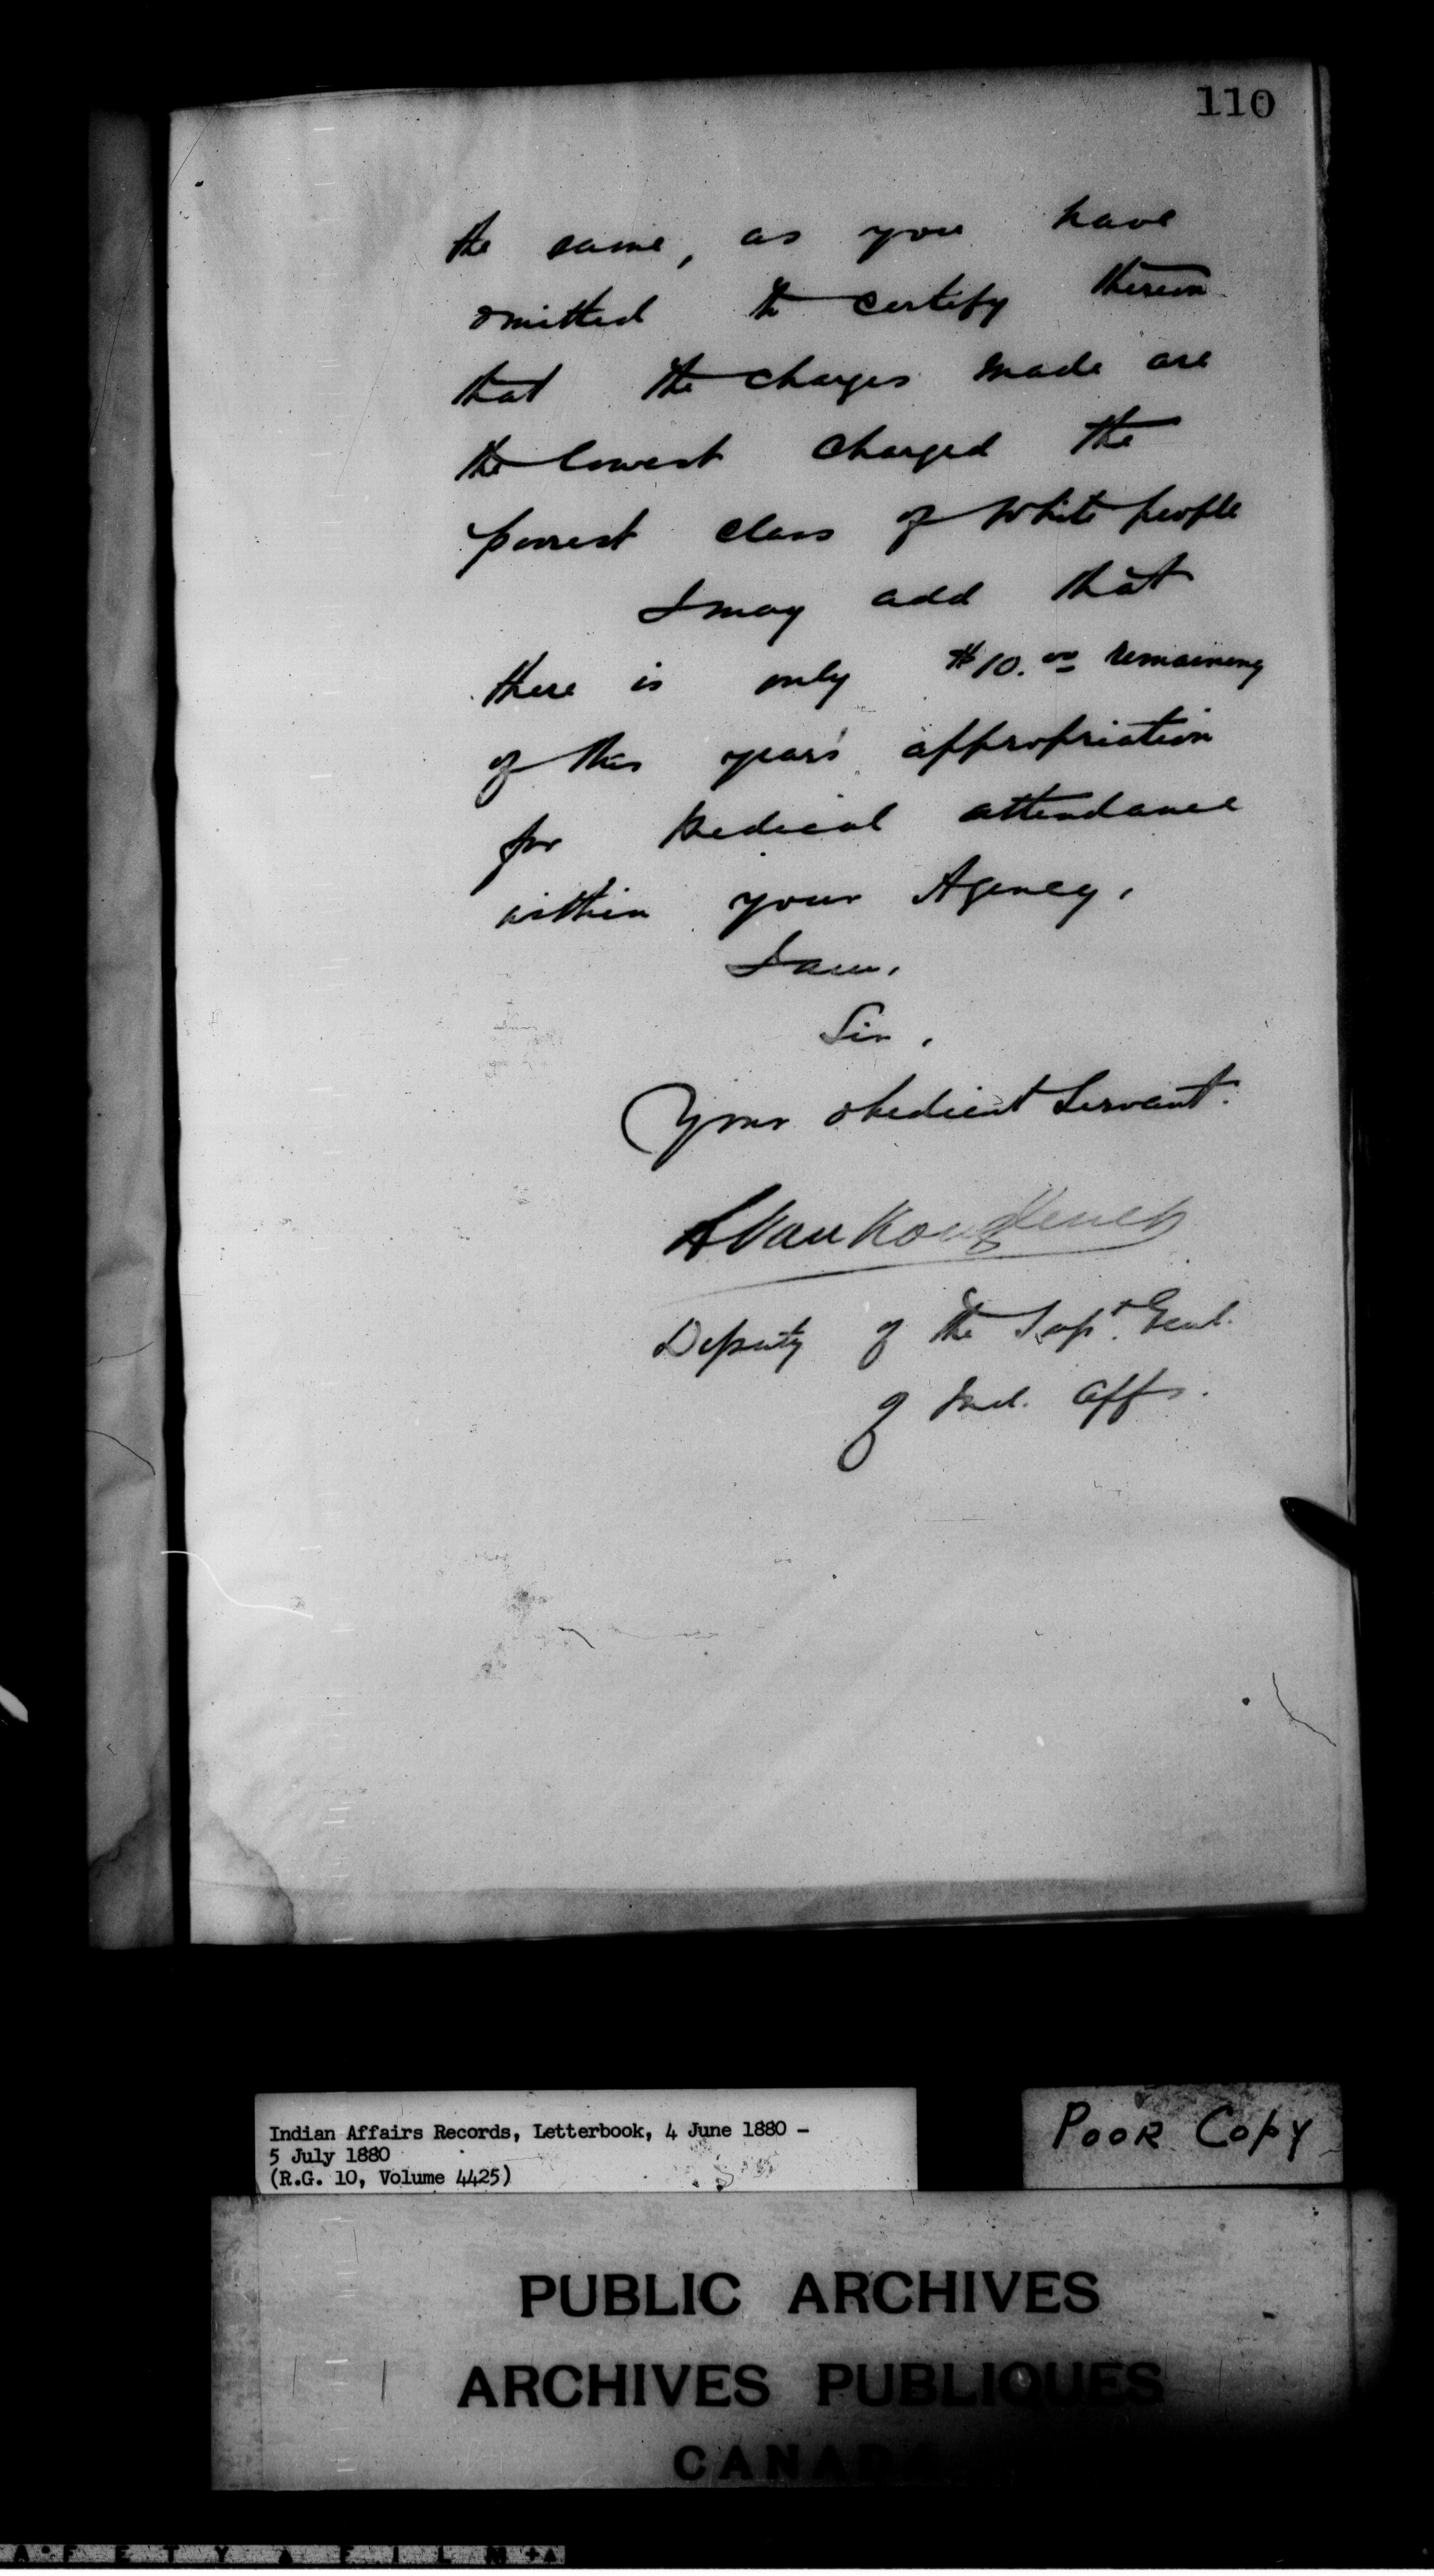 110
the same, as you have
omitted to certify thereon
that the charges made are
the lowest charged the
poorest class of White people
I may add that
there is only $10.00 remaining
of this year's appropriation
for Medical attendance
within your Agency,
I am,
Sir,
Your obedient Servant.
L Van Koughnet
Deputy of the Supt. Genl.
of Ind. Affs.
Indian Affairs Records, Letterbook, 4 June 1880 -
5 July 1880
(R.G. 10, Volume 4425)
POOR COPY
PUBLIC ARCHIVES
ARCHIVES PUBLIQUES
CANADA
SAFETY FILM